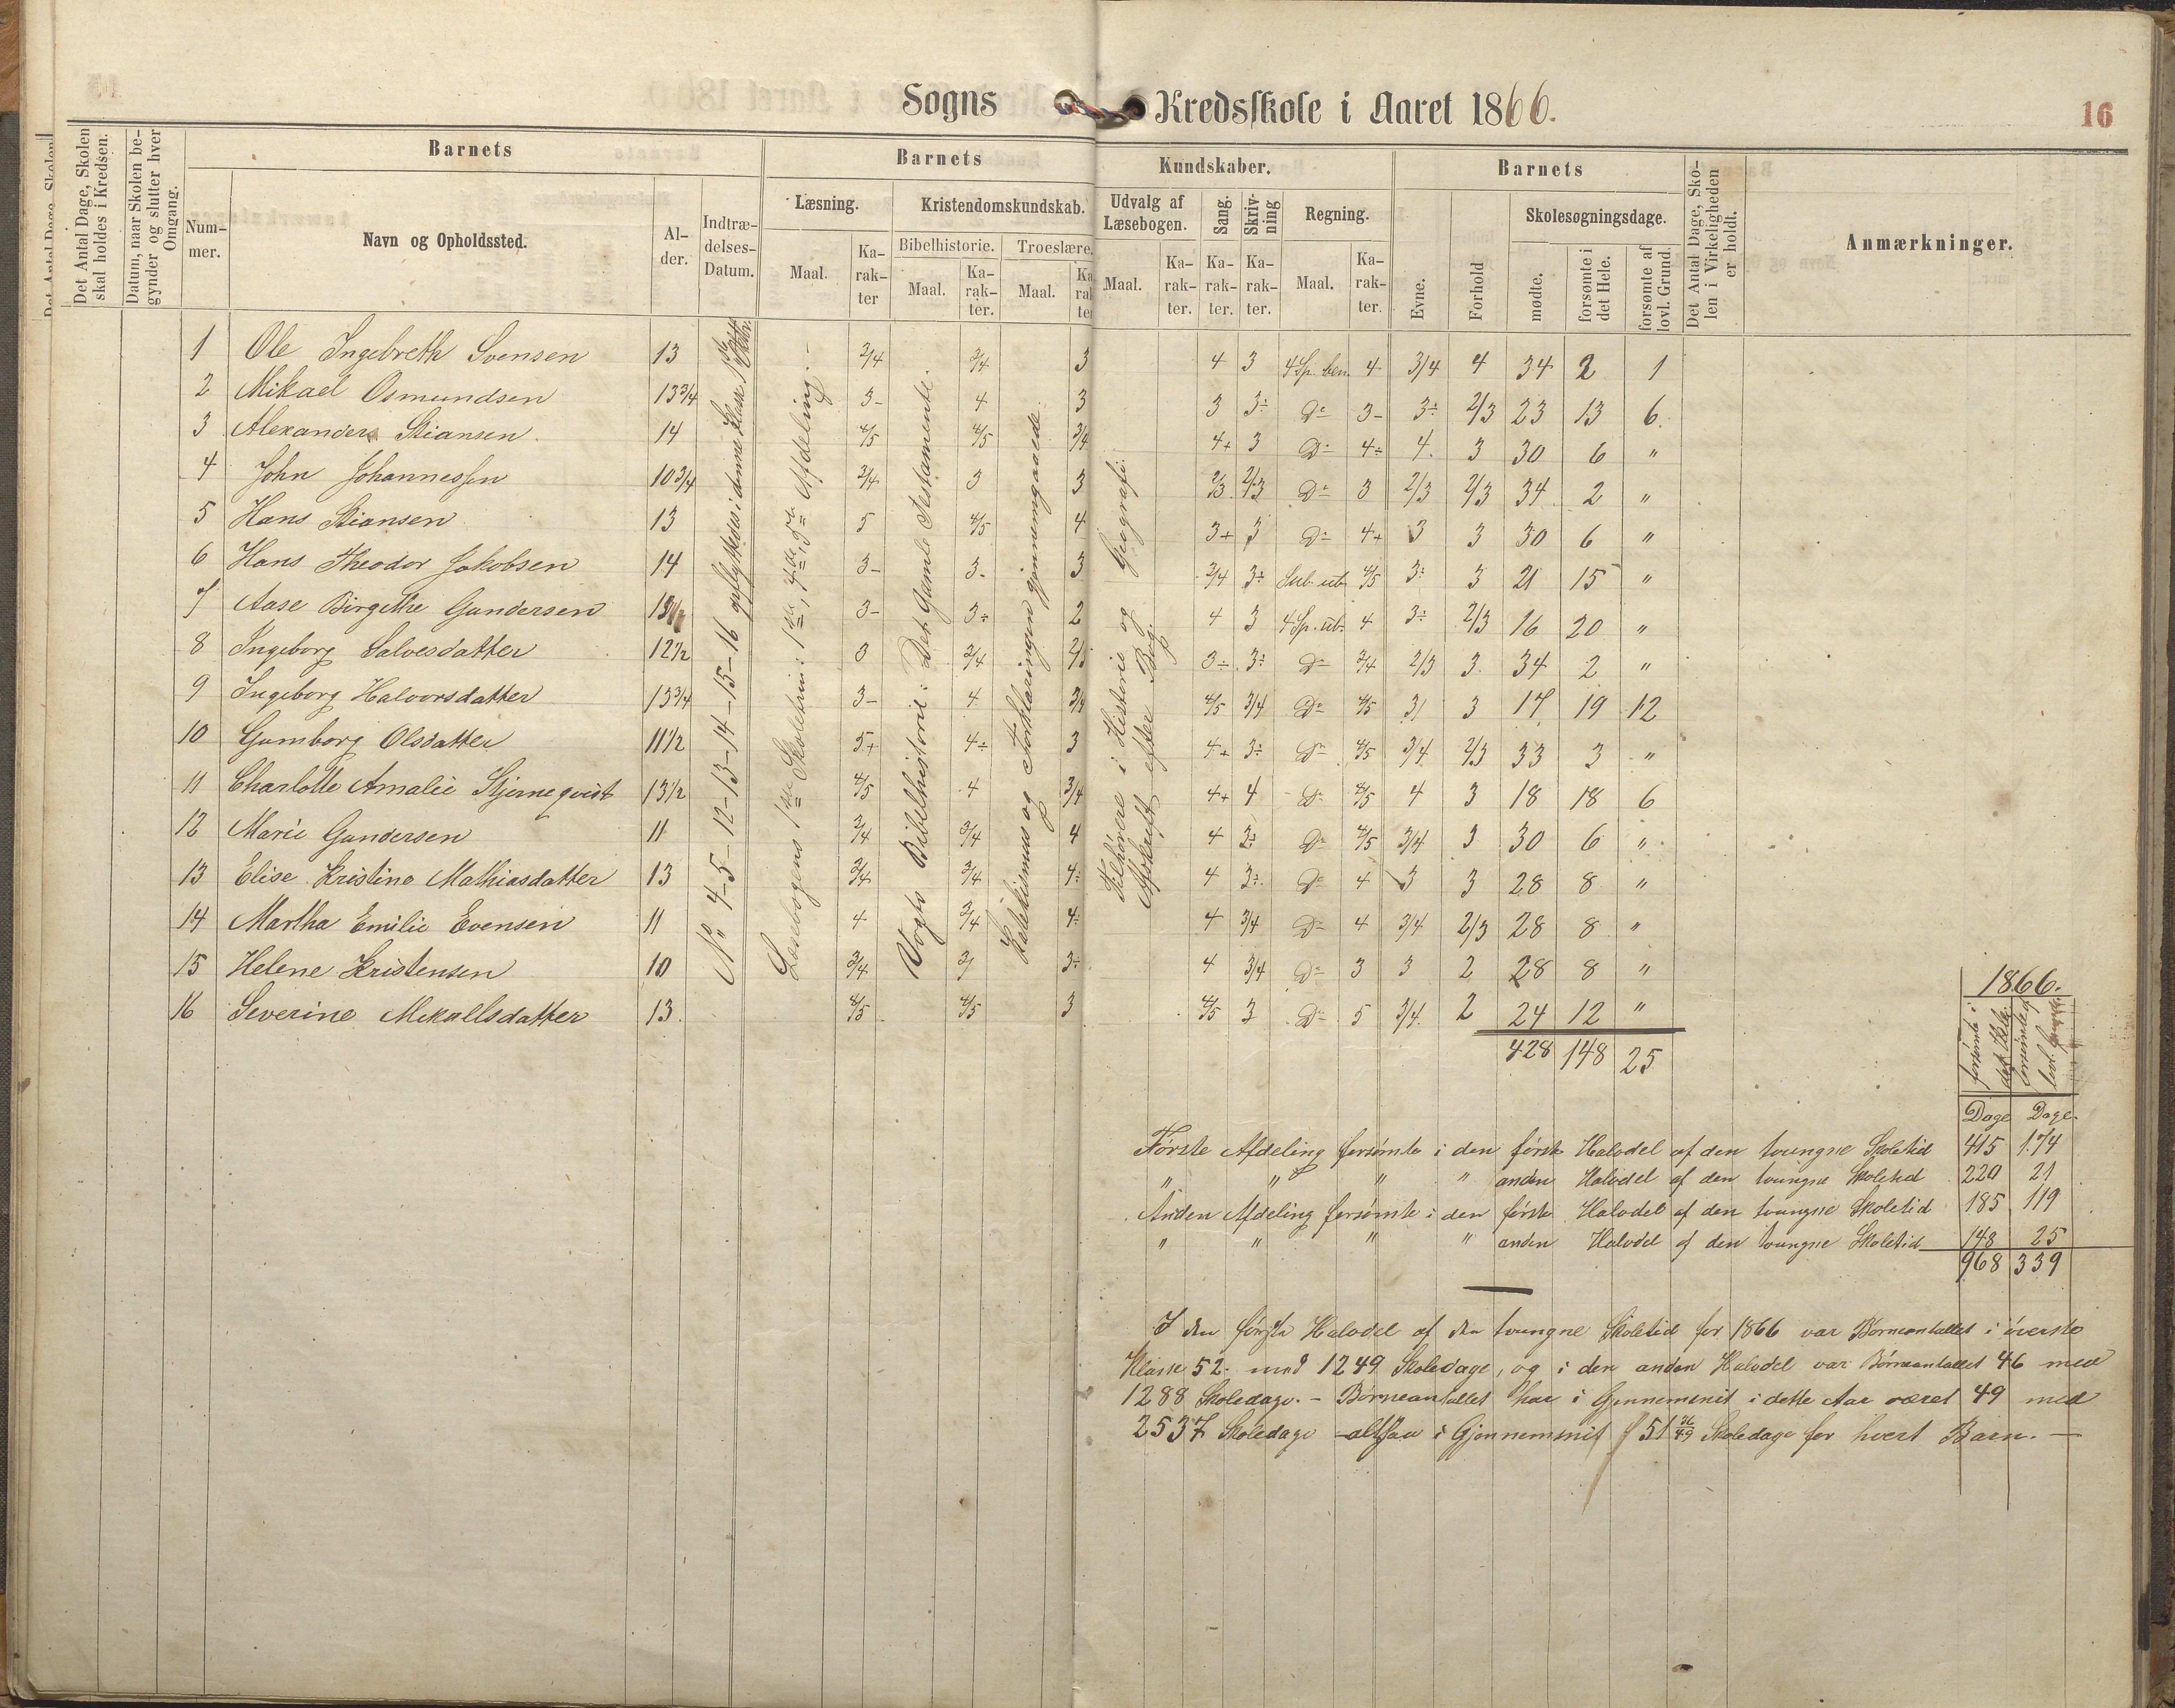 Sogns Kredsskole i Aaret 1866.
16
Det Antal Dage, Skolen skal holdes i Kredsen.
Datum, naar Skolen begynder og slutter hver Omgang.
Barnets
Nummer.
Navn og Opholdssted.
Alder.
Indtrædelses-Datum.
Barnets Kundskaber.
Læsning.
Maal.
Karakter
Kristendomskundskab.
Bibelhistorie.
Maal.
Karakter.
Troeslære.
Maal.
Karakter
Udvalg af Læsebogen.
Maal.
Karakter.
Sang.
Karakter.
Skrivning
Karakter.
Regning.
Maal.
Karakter.
Barnets
Evne.
Forhold
Skolesøgningsdage.
mødte.
forsømte i det Hele.
forsømte af lovl. Grund.
Det Antal Dage, Skolen i Virkeligheden er holdt.
Anmærkninger.
No 4-5-12-13-14-15-16 opflyttedes i denne Klasse
Læsebogens 1ste Skoletrin: 1ste, 4de, 5te Afdeling.
Vogts Bibelhistorie: Det Gamle Testamente.
Katekismus og Forklaringen gjennemgaaede.
Tilhørere i Historie og Geografi.
Afskrift efter Bog.
1 Ole Ingebreth Svensen 13 3/4 3/4 3 4 3 4 Sp. ben. 4 3/4 4 34 2 1
2 Mikael Osmundsen 13 3/4 3- 4 3 3 3÷ Do 3- 3÷ 2/3 23 13 6
3 Alexander Stiansen 14 4/5 4/5 3/4 4+ 3 Do 4÷ 4. 3 30 6 "
4 John Johannessen 10 3/4 3/4 3 3 2/3 2/3 Do 3 2/3 2/3 34 2 "
5 Hans Stiansen 13 5 4/5 4 3+ 3 Do 4+ 3 3 30 6 "
6 Hans Theodor Jakobsen 14 3- 3- 3 3/4 3÷ Sub. ub. 4/5 3÷ 3 21 15 "
7 Aase Birgithe Gundersen 3- 3÷ 2 4 3 4 Sp. ub. 4 3÷ 2/3 16 20 "
8 Ingeborg Salvesdatter 12 1/2 3 3/4 2/3 3÷ 3÷ Do 3/4 2/3 3 34 2 "
9 Ingeborg Halvorsdatter 13 3/4 3- 4 3/4 4/5 3/4 Do 4/5 3/ 3 17 19 12
10 Gumborg Olsdatter 11 1/2 5+ 4÷ 3 4+ 3÷ Do 4/5 3/4 2/3 33 3 "
11 Charlotte Amalie Stjerneqvist 13 1/2 4/5 4 3/4 4+ 4 Do 4/5 4 3 18 18 6
12 Marie Gundersen 11 3/4 3/4 4 4 3÷ Do 4/5 3/4 3 30 6 "
13 Elise Kristine Mathiasdatter 13 3/4 3/4 4÷ 4 3÷ Do 4 3 3 28 8 "
14 Martha Emilie Evensen 11 4 3/4 4÷ 4 3/4 Do 4 3/4 2/3 28 8 "
15 Helene Kristensen 10 3/4 3/ 3÷ 4 3/4 Do 3 3 2 28 8 "
16 Severine Mekallsdatter 13. 4/5 4/5 3 4/5 3 Do 5 3/4 2 24 12 "
428 148 25
1866.
forsømte i det Hele
forsømte af lovl. Grund
Dage Dage.
Første Afdeling forsømte i den første Halvdel af den tvungne Skoletid 415 174
" " " " anden Halvdel af den tvungne Skoletid 220 21
Anden Afdeling forsømte i den første Halvdel af den tvungne Skoletid 185 119
" " " " anden Halvdel af den tvungne Skoletid 148 25
968 339
I den første Halvdel af den tvungne Skoletid for 1866 var Børneantallet i øverste
Klasse 52 med 1249 Skoledage, og i den anden Halvdel var Børneantallet 46 med
1288 Skoledage. - Børneantallet har i Gjennemsnit i dette Aar været 49 med
2537 Skoledage altsaa i Gjennemsnit 51 Skoledage for hvert Barn. —